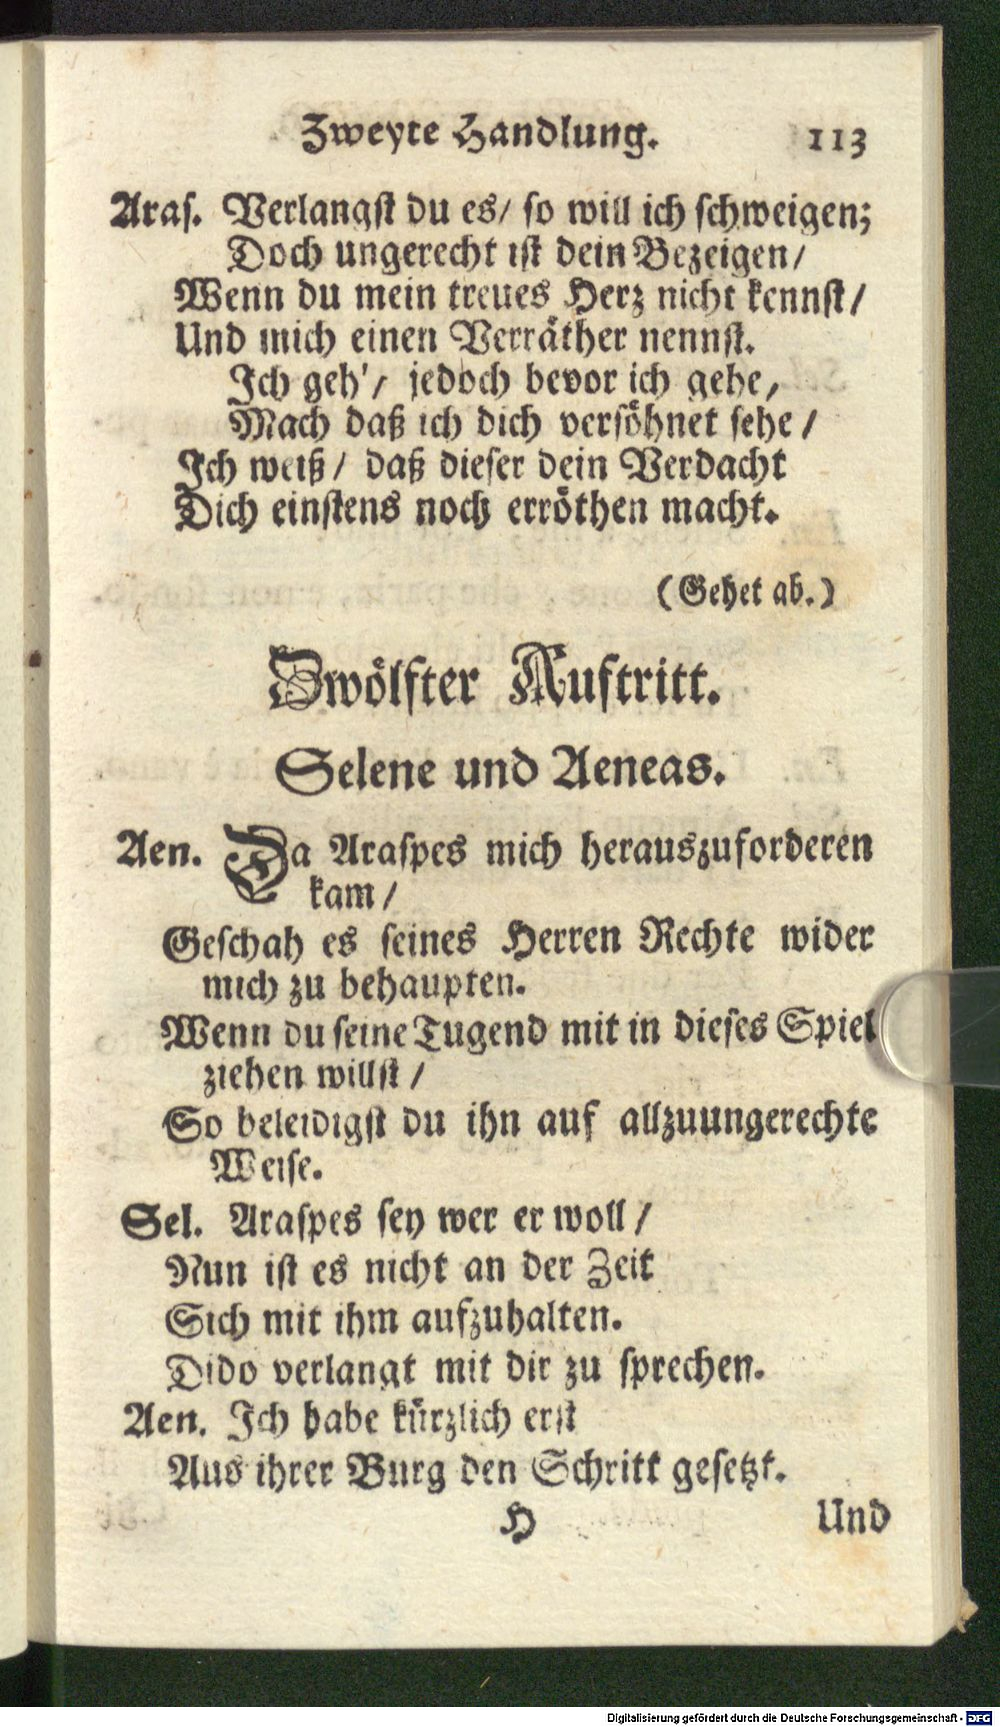 Zweyte Handlung. 113
Aras. Verlangst du es/ so will ich schweigen;
Doch ungerecht ist dein Bezeigen/
Wenn du mein treues Herz nicht kennst/
Und mich einen Verräther nennst.
Ich geh'/ jedoch bevor ich gehe,
Mach daß ich dich versöhnet sehe/
Ich weiß/ daß dieser dein Verdacht
Dich einstens noch erröthen macht.
(Gehet ab.)
Zwölfter Auftritt.
Selene und Aeneas.
Aen. Da Araspes mich herauszuforderen
kam/
Geschah es seines Herren Rechte wider
mich zu behaupten.
Wenn du seine Tugend mit in dieses Spiel
ziehen willst/
So beleidigst du ihn auf allzuungerechte
Weise.
Sel. Araspes sey wer er woll/
Nun ist es nicht an der Zeit
Sich mit ihm aufzuhalten.
Dido verlangt mit dir zu sprechen.
Aen. Ich habe kürzlich erst
Aus ihrer Burg den Schritt gesetzt.
H Und
Digitalisierung gefördert durch die Deutsche Forschungsgemeinschaft - DFG